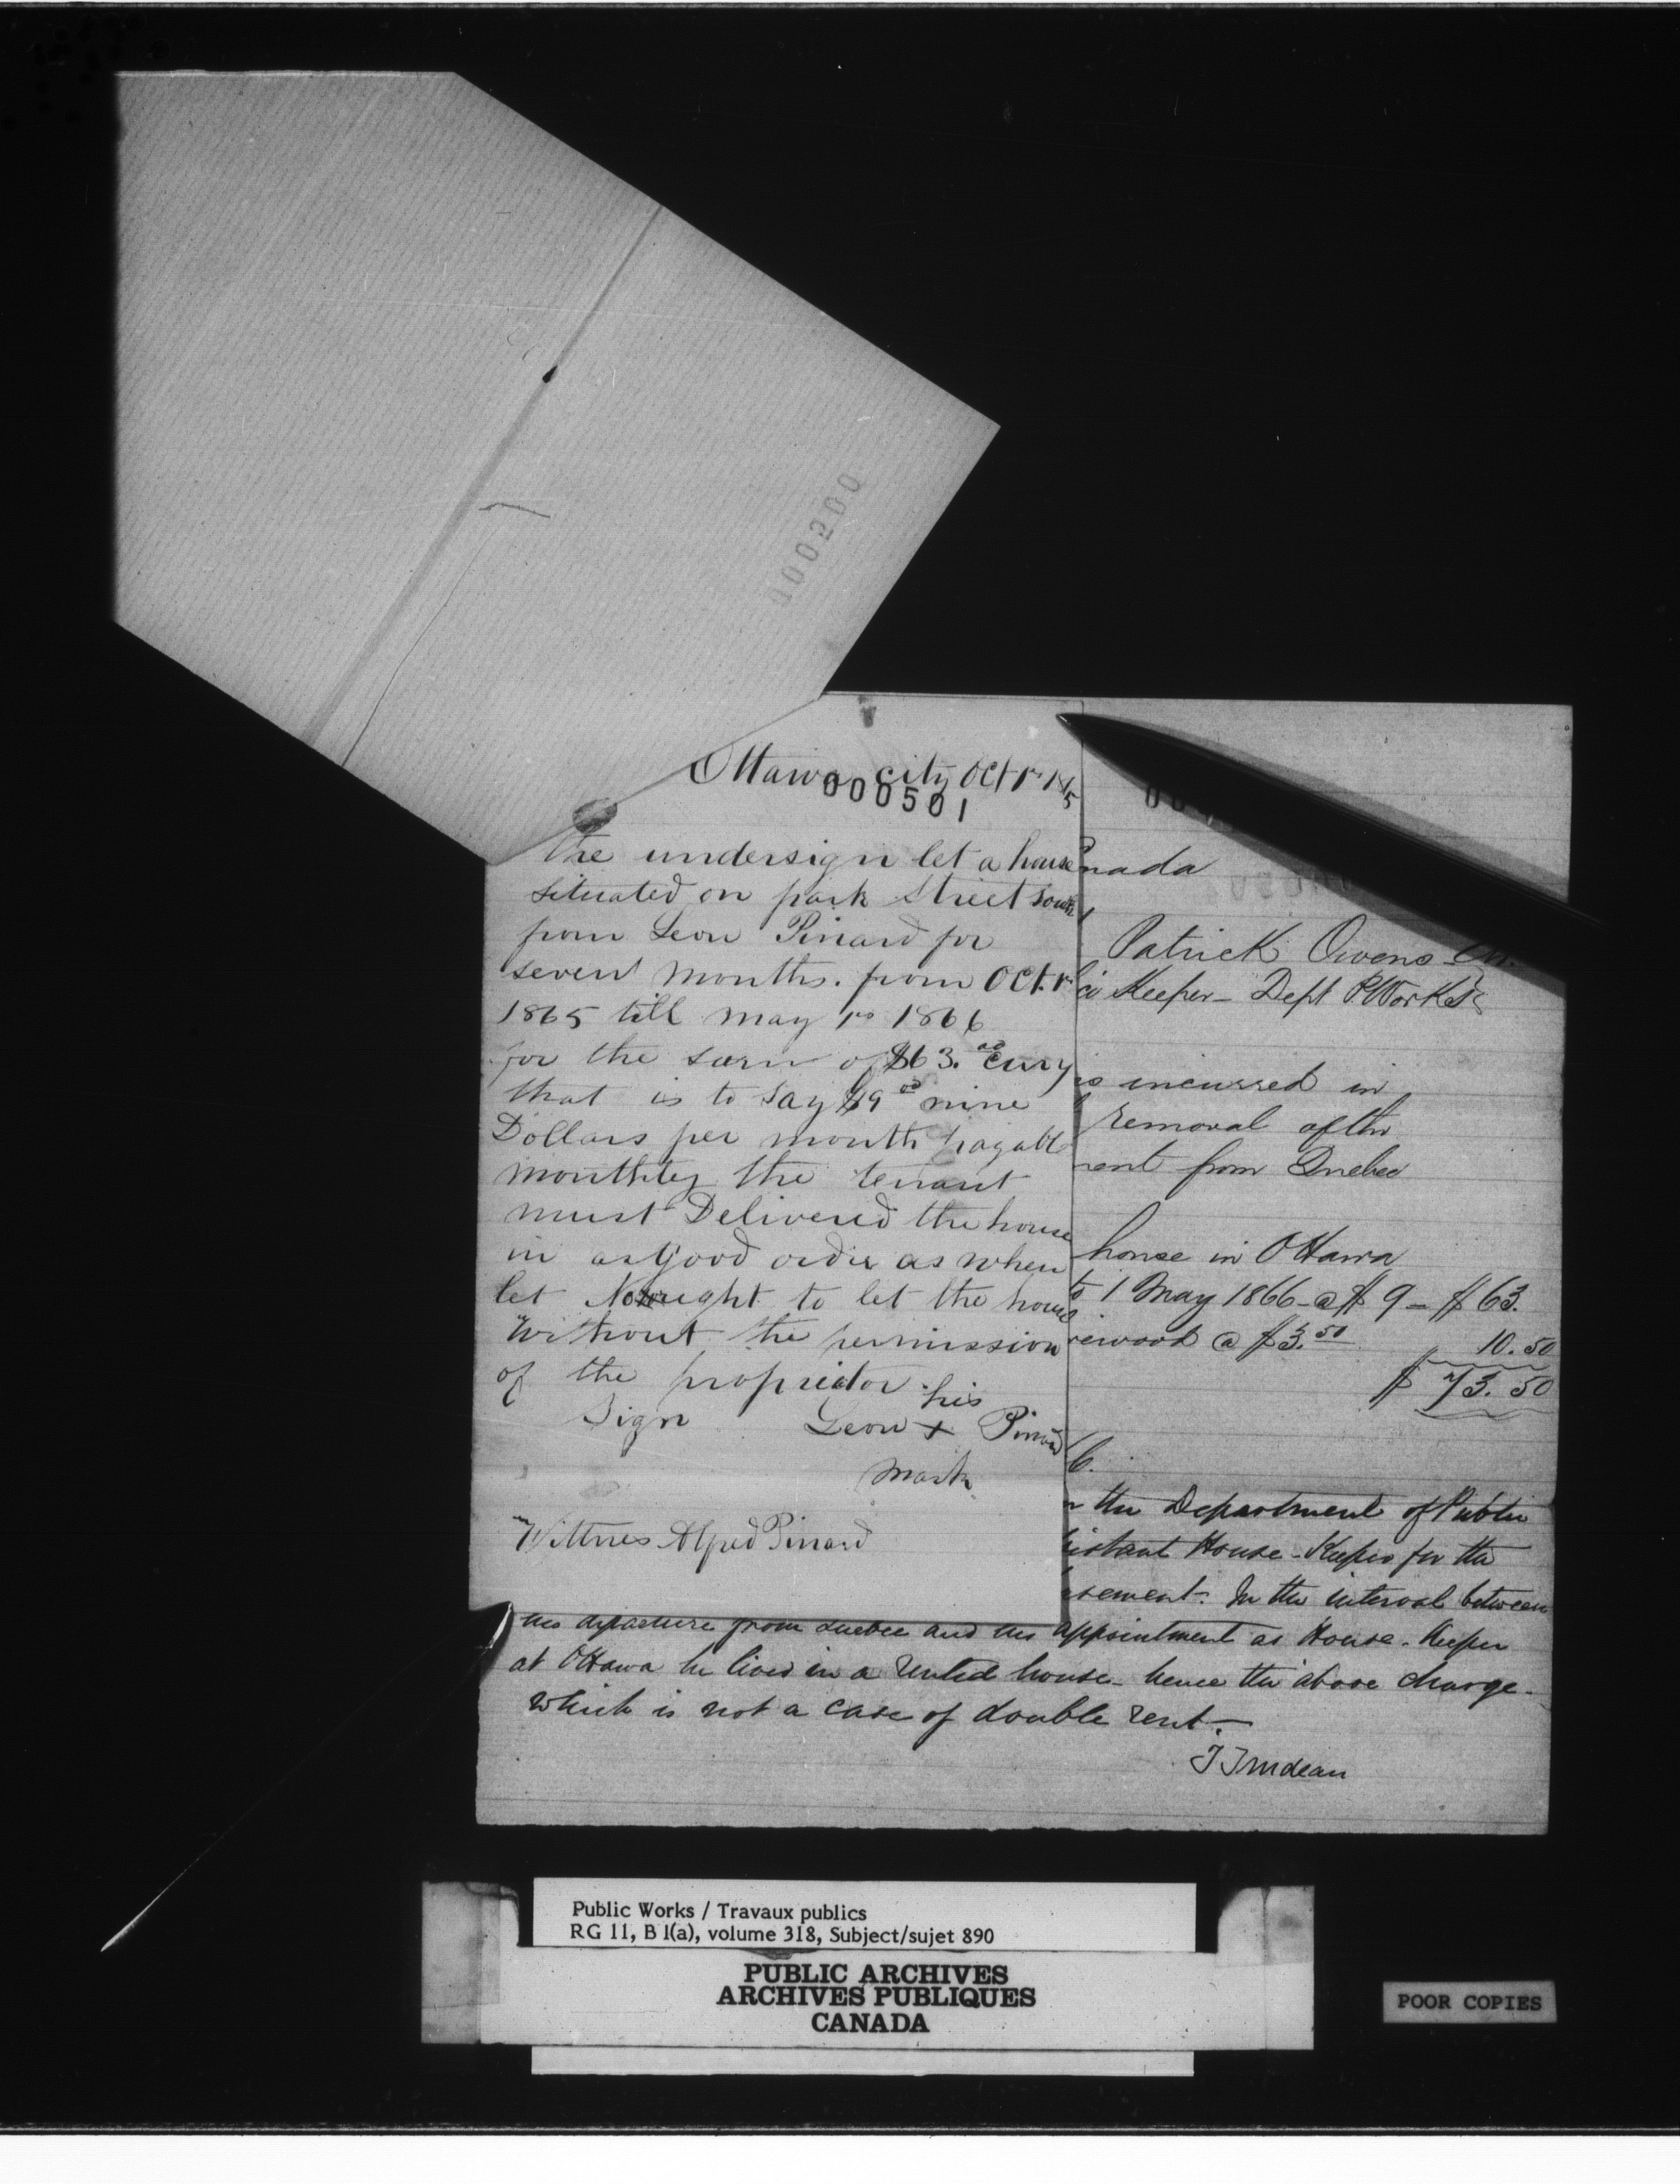 000200
Ottawa city Oct 1rs 1865
000501
the undersign let a house
situated on park Street South
from Leon Pinard for
seven months. from Oct. 1r
1865 till may 1rs 1866
for the sum of $63.00 Cury
that is to say $9 00 nine
Dollars per month payable
monthley the tenant
must Delivered the house
in as Good order as when
let No right to let the house
Without the permission
of the propriator
his
Sign Leon + Pinard
mark
Wittnes Alfred Pinard
nada
Patrick Owens
Keeper - Dept P Works
incurred in
removal of the
ent from Quebec
house in Ottawa
to 1 May 1866 - @ $ 9 - $ 63.
rewood @ $3.50 10.50
$ 73.50
6.
n the Department of Public
istant House-Keeper for the
sement. In the interval between
his departure from Quebec and his appointment as House-Keeper
at Ottawa he lived in a rented house - hence the above charge -
which is not a case of double rent. -
T Trudeau
Public Works / Travaux publics
RG 11, B 1(a), volume 318, Subject/sujet 890
PUBLIC ARCHIVES
ARCHIVES PUBLIQUES
CANADA
POOR COPIES